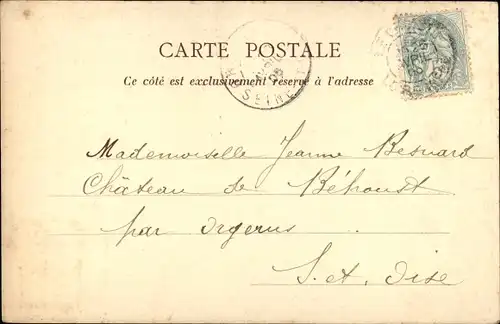 CARTE POSTALE
Ce côté est exclusivement réservé à l'adresse
Mademoiselle Jeanne Besnard
Château de Béhoust
par Orgerus
S. et. Oise